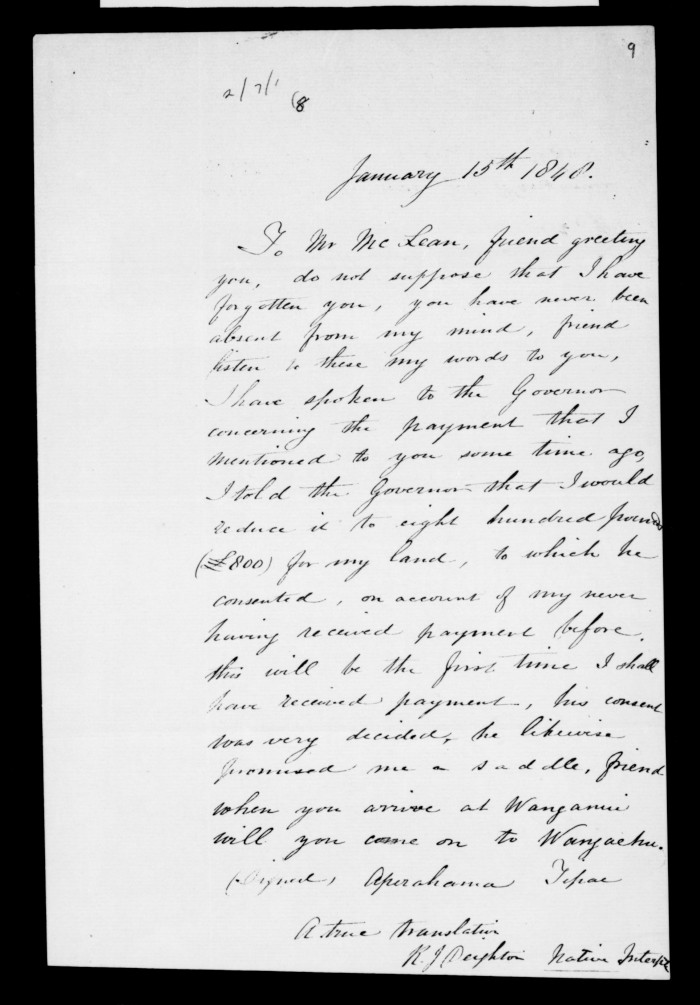 9
2/7/1
(8
January 15th 1848.
To Mr McLean, friend greeting
you, do not suppose that I have
forgotten you, you have never been
absent from my mind, friend
listen to these my words to you,
I have spoken to the Governor
concerning the payment that I
mentioned to you some time ago,
I told the Governor that I would
reduce it to eight hundred pounds
(£800) for my land, to which he
consented, on account of my never
having received payment before.
this will be the first time I shall
have received payment, his consent
was very decided, he likewise
promised me a saddle, friend
when you arrive at Wanganui
will you come on to Wangaehu.
(Signed) Aperahama Tipae
A true translation
R. J Deighton Native Interpr